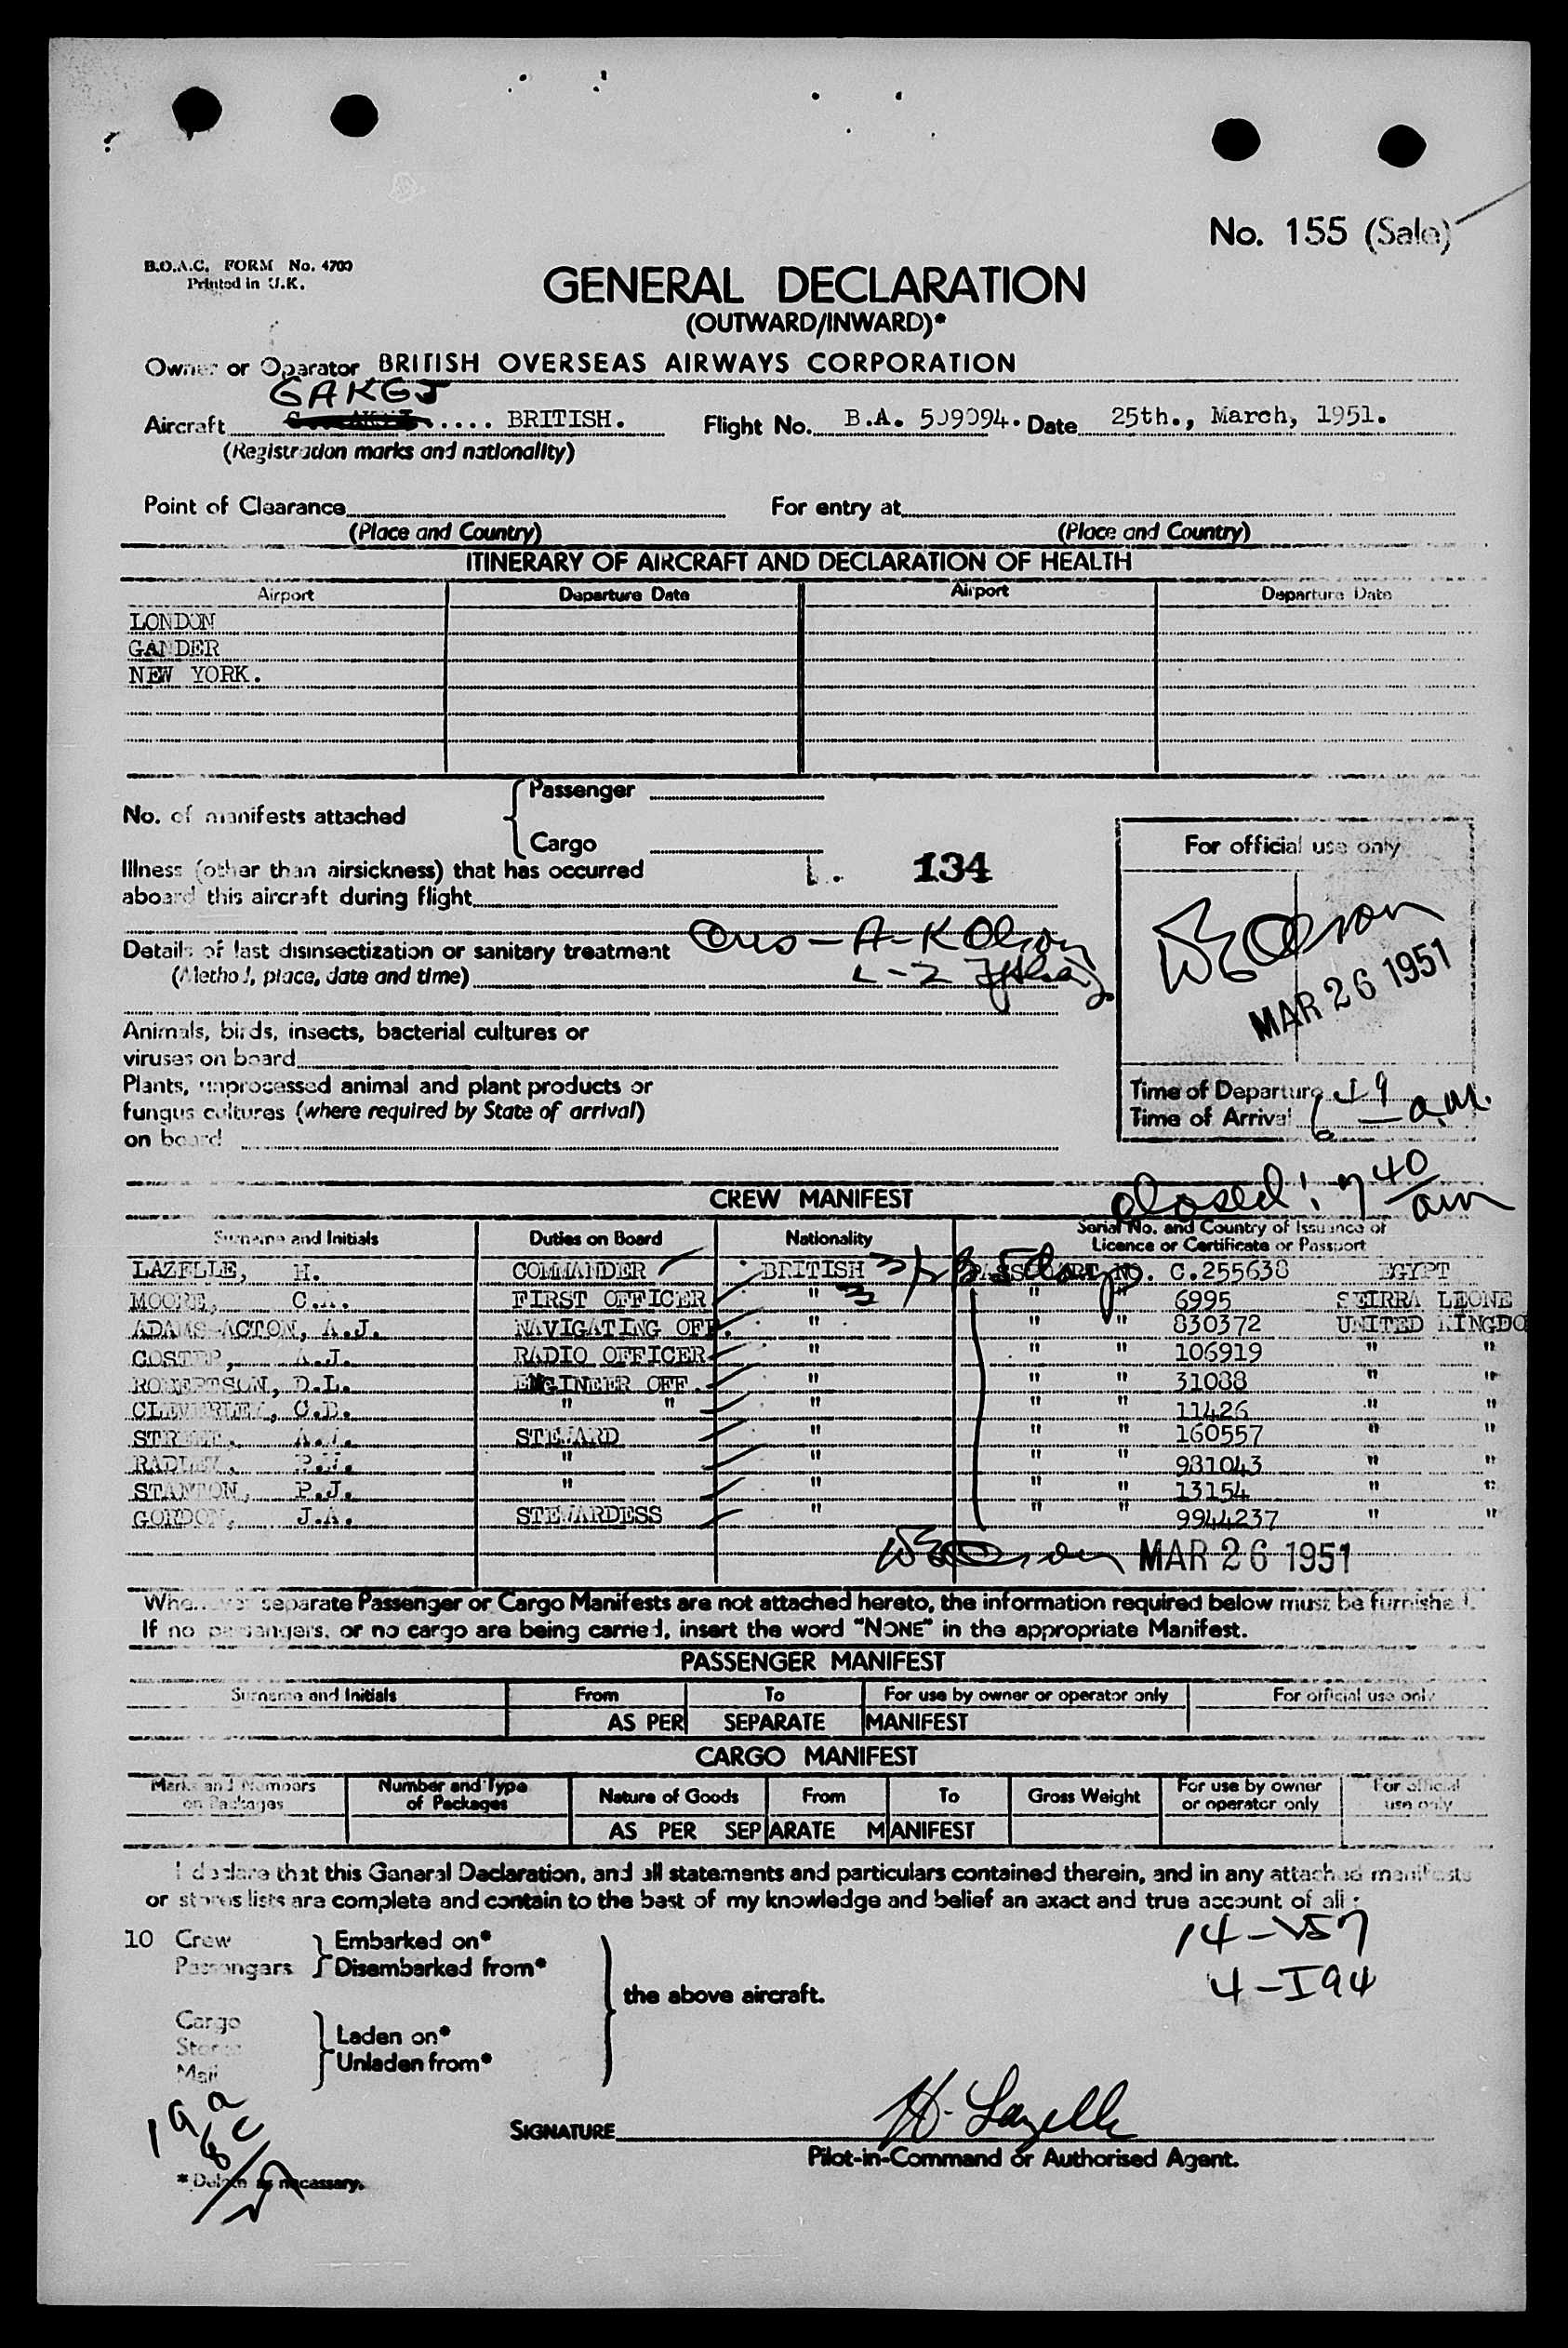 No. 155 (Sale)
B.O.A.C. FORM No. 4700
Printed in U.K.
GENERAL DECLARATION
(OUTWARD/INWARD)*
Owner or Operator BRITISH OVERSEAS AIRWAYS CORPORATION
GAKGJ
Aircraft .... BRITISH. Flight No. B.A. 509094. Date 25th., March, 1951.
(Registration marks and nationality)
Point of Clearance For entry at
(Place and Country) (Place and Country)
ITINERARY OF AIRCRAFT AND DECLARATION OF HEALTH
Airport Departure Date Airport Departure Date
LONDON
GANDER
NEW YORK.
No. of manifests attached
Passenger
Cargo
For official use only
Illness (other than airsickness) that has occurred
134
aboard this aircraft during flight
Details of last disinsectization or sanitary treatment
(Method, place, date and time)
MAR 26 1951
Animals, birds, insects, bacterial cultures or
viruses on board
Plants, unprocessed animal and plant products or
fungus cultures (where required by State of arrival)
on board
Time of Departure
Time of Arrival 6 19 a.m.
closed: 7 40 am
CREW MANIFEST
Surname and Initials Duties on Board Nationality Serial No. and Country of Issuance of
Licence or Certificate or Passport
LAZELLE, H. COMMANDER BRITISH PASSPORT NO. C.255638 EGYPT
MOORE, FIRST OFFICER " " " 6995 SEIRRA LEONE
ADAMS-ACTON, A.J. NAVIGATING OFF. " " " 830372 UNITED KINGDO
COSTER, A.J. RADIO OFFICER " " " 106919 " "
ROBERTSON, D.L. ENGINEER OFF. " " " 31088 " "
CLEVERLEY, C.D. " " " " " 11426 " "
STREET, STEWARD " " " 160557 " "
RADLEY, " " " " 981043 " "
STANTON, P.J. " " " " 13154 " "
GORDON, J.A. STEWARDESS " " " 9944237 " "
MAR 26 1951
Whenever separate Passenger or Cargo Manifests are not attached hereto, the information required below must be furnished.
If no passengers, or no cargo are being carried, insert the word "NONE" in the appropriate Manifest.
PASSENGER MANIFEST
Surname and Initials From To For use by owner or operator only For official use only
AS PER SEPARATE MANIFEST
CARGO MANIFEST
Marks and Numbers on Packages Number and Type of Packages Nature of Goods From To Gross Weight For use by owner or operator only For official use only
AS PER SEPARATE MANIFEST
I declare that this General Declaration, and all statements and particulars contained therein, and in any attached manifests
or stores lists are complete and contain to the best of my knowledge and belief an exact and true account of all:
10 Crew Embarked on*
Passengers Disembarked from*
the above aircraft.
4-I94
Cargo
Stores
Mail
Laden on*
Unladen from*
SIGNATURE H. Lazelle
Pilot-in-Command or Authorised Agent.
* Delete as necessary.